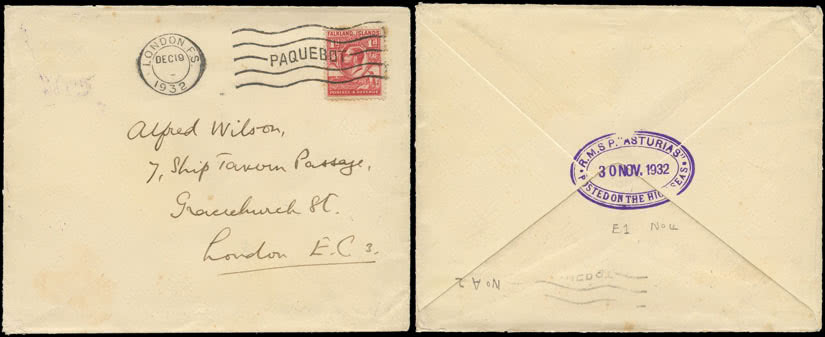 LONDON F.S.
DEC 19
1932
PAQUEBOT
FALKLAND ISLANDS
1d 1d
POSTAGE & REVENUE
Alfred Wilson,
7, Ship Tavern Passage,
Gracechurch St.
London E.C 3.
R.M.S.P. "ASTURIAS"
30 NOV. 1932
POSTED ON THE HIGH SEAS
E1 No 4
No A 2